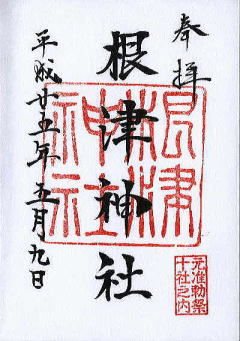 奉拝
根津神社
平成廿五年五月九日
根津神社
元准勅祭
十社之内